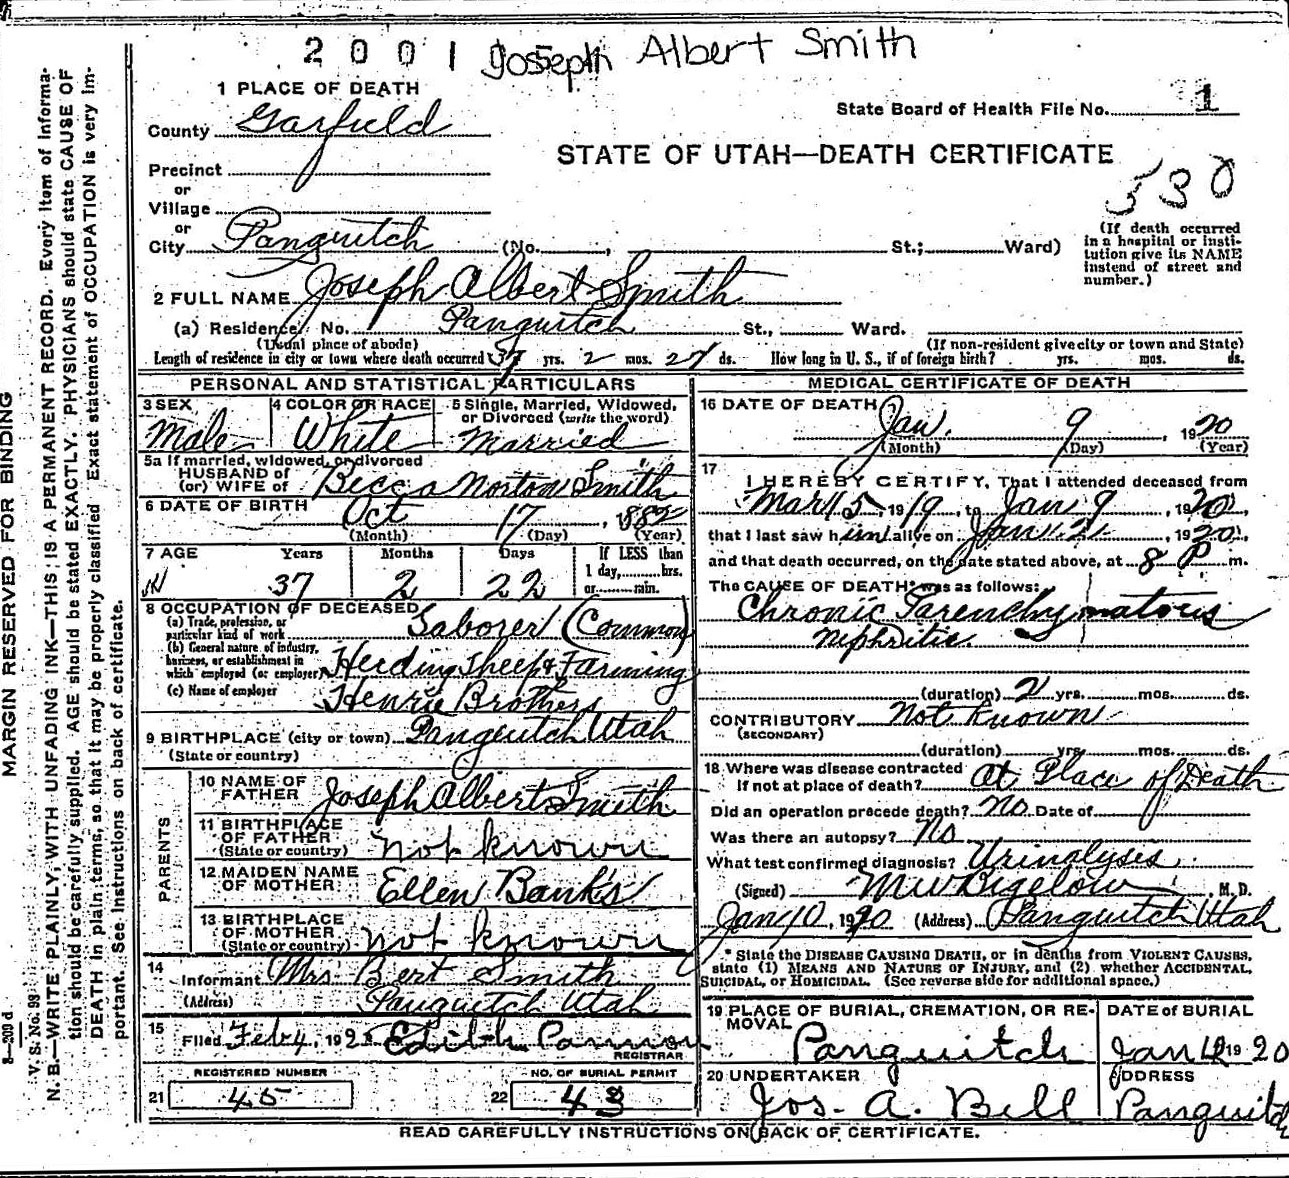 2001 Joseph Albert Smith
1 PLACE OF DEATH
State Board of Health File No. 1
County Garfield
STATE OF UTAH—DEATH CERTIFICATE
Precinct
530
or
Village
or
City Panguitch (No. , St.; Ward)
(If death occurred in a hospital or institution give its NAME instead of street and number.)
2 FULL NAME Joseph Albert Smith
(a) Residence No. Panguitch St., Ward.
(Usual place of abode) (If non-resident give city or town and State)
Length of residence in city or town where death occurred 37 yrs. 2 mos. ds. How long in U. S., if of foreign birth? yrs. mos. ds.
PERSONAL AND STATISTICAL PARTICULARS
3 SEX 4 COLOR OR RACE 5 Single, Married, Widowed, or Divorced (write the word)
Male White Married
5a If married, widowed, or divorced
HUSBAND of
(or) WIFE of Becca Norton Smith
6 DATE OF BIRTH Oct 17, 1882
(Month) (Day) (Year)
7 AGE Years Months Days If LESS than
1 day, hrs.
37 2 22 or min.
8 OCCUPATION OF DECEASED
(a) Trade, profession, or particular kind of work Laborer (Common)
(b) General nature of industry, business, or establishment in which employed (or employer) Herding Sheep & Farming
(c) Name of employer Henrie Brothers
9 BIRTHPLACE (city or town) Panguitch Utah
(State or country)
PARENTS
10 NAME OF FATHER Joseph Albert Smith
11 BIRTHPLACE OF FATHER
(State or country) not known
12 MAIDEN NAME OF MOTHER Ellen Banks
13 BIRTHPLACE OF MOTHER
(State or country) not known
14
Informant Mrs Bert Smith
(Address) Panguitch Utah
15
Filed Feb 4, 192 Edith
REGISTRAR
REGISTERED NUMBER NO. OF BURIAL PERMIT
21 45 22 43
MEDICAL CERTIFICATE OF DEATH
16 DATE OF DEATH
Jan. 9, 1920
(Month) (Day) (Year)
17
I HEREBY CERTIFY, That I attended deceased from
Mar 15 1919, to Jan 9, 1920,
that I last saw him alive on Jan , 1920,
and that death occurred, on the date stated above, at 8 P m.
The CAUSE OF DEATH* was as follows:
Chronic Parenchymatous
Nephritis
(duration) 2 yrs. mos. ds.
CONTRIBUTORY Not Known
(SECONDARY)
(duration) yrs. mos. ds.
18 Where was disease contracted
If not at place of death? At Place of Death
Did an operation precede death? No Date of
Was there an autopsy? No
What test confirmed diagnosis? Urinalyses
(Signed) M W Bigelow, M. D.
Jan 10, 1920 (Address) Panguitch Utah
* State the DISEASE CAUSING DEATH, or in deaths from VIOLENT CAUSES, state (1) MEANS AND NATURE OF INJURY, and (2) whether ACCIDENTAL, SUICIDAL, or HOMICIDAL. (See reverse side for additional space.)
19 PLACE OF BURIAL, CREMATION, OR REMOVAL DATE of BURIAL
Panguitch Jan 12 1920
20 UNDERTAKER ADDRESS
Jos. A. Bell Panguitch
READ CAREFULLY INSTRUCTIONS ON BACK OF CERTIFICATE.
MARGIN RESERVED FOR BINDING
V. S. No. 98
N. B.—WRITE PLAINLY, WITH UNFADING INK—THIS IS A PERMANENT RECORD. Every item of information should be carefully supplied. AGE should be stated EXACTLY. PHYSICIANS should state CAUSE OF DEATH in plain terms, so that it may be properly classified. Exact statement of OCCUPATION is very important. See instructions on back of certificate.